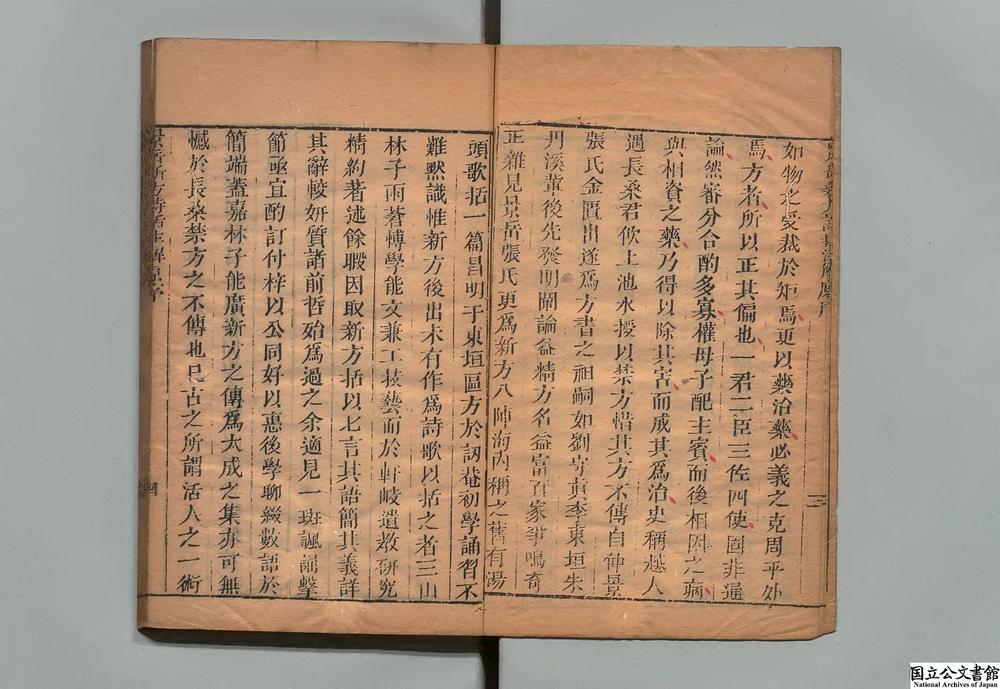 如物之受裁於矩焉更以藥治藥必義之克周乎處
焉方者所以正其偏也一君二臣三佐四使固非通
論然審分合酌多寡權母子配主賓而後相因之病
與相資之藥乃得以除其害而成其為治史稱越人
遇長桑君飲上池水授以禁方惜其方不傳自仲景
張氏金匱出遂為方書之祖嗣如劉守真李東垣朱
丹溪輩後先發明闡論益精方名益富百家爭鳴奇
正雜見景岳張氏更為新方八陣海內稱之舊有湯
三
頭歌括一篇昌明于東垣區方於訒菴初學誦習不
難默識惟新方後出未有作為詩歌以括之者三山
林子雨蒼博學能文兼工技藝而於軒岐遺教研究
精約著述餘暇因取新方括以七言其語簡其義詳
其辭較妍質諸前哲殆為過之余適見一斑諷誦擊
節亟宜酌訂付梓以公同好以惠後學聊綴數語於
簡端蓋嘉林子能廣新方之傳為大成之集亦可無
憾於長桑禁方之不傳也已古之所謂活人之一術
四
国立公文書館
National Archives of Japan